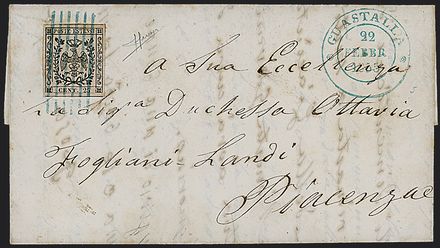 POSTE ESTENSI
CENT. 25
GUASTALLA
22
FEBBR
A Sua Eccellenza
la Sig.a Duchessa Ottavia
Fogliani-Landi
Piacenza